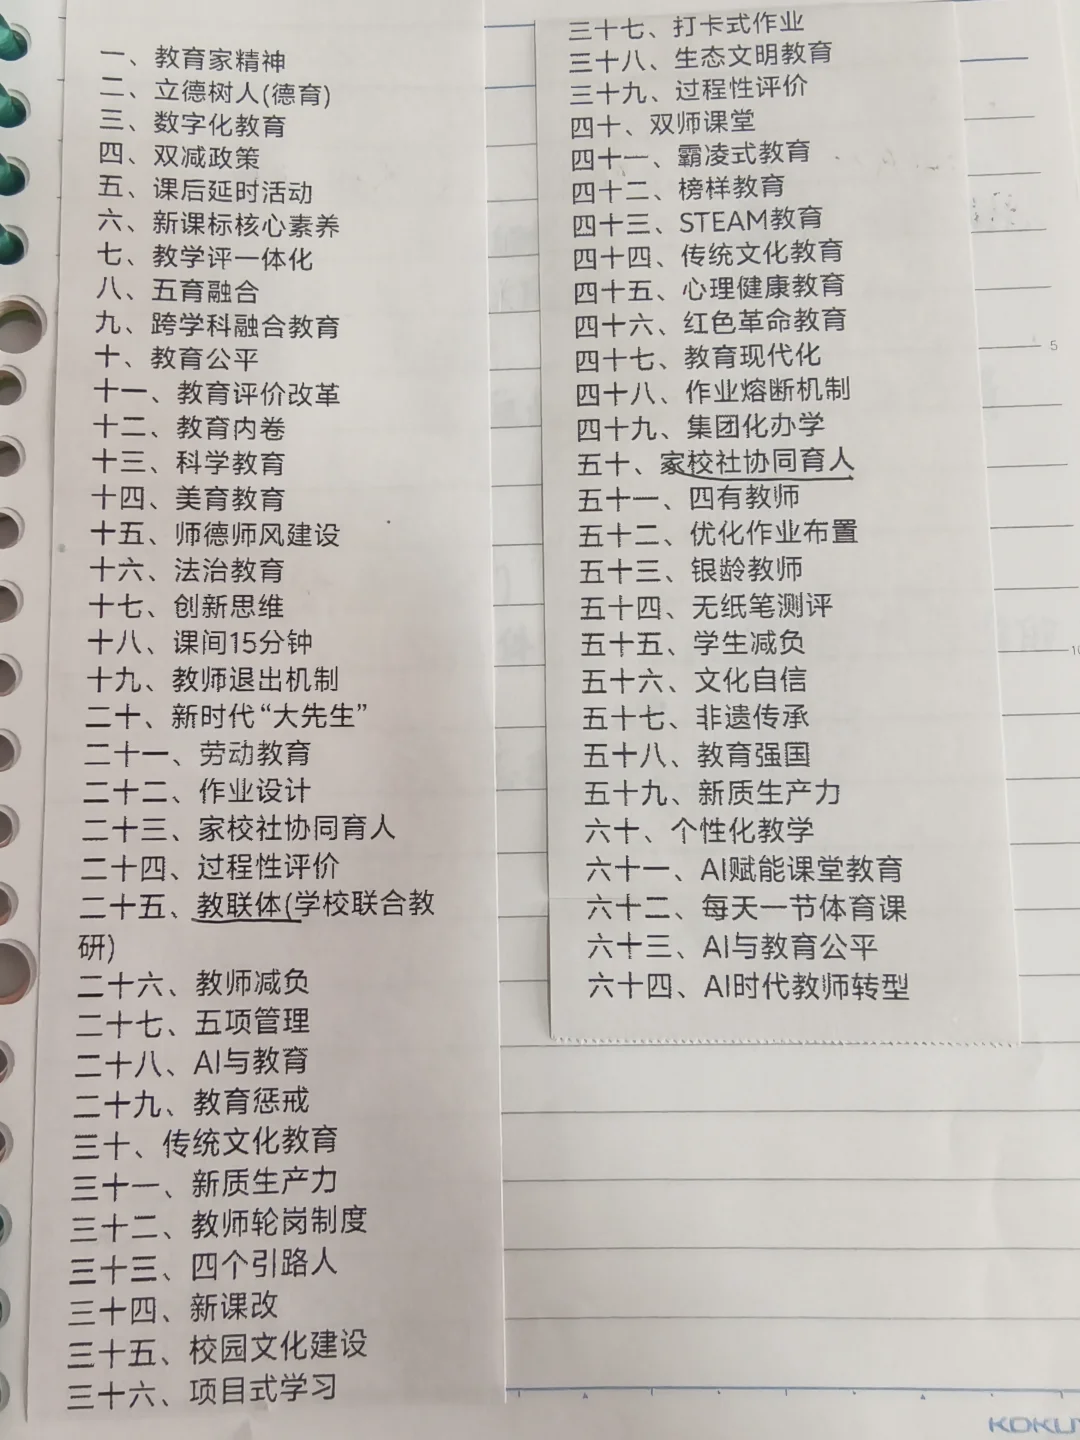 一、教育家精神
二、立德树人(德育)
三、数字化教育
四、双减政策
五、课后延时活动
六、新课标核心素养
七、教学评一体化
八、五育融合
九、跨学科融合教育
十、教育公平
十一、教育评价改革
十二、教育内卷
十三、科学教育
十四、美育教育
十五、师德师风建设
十六、法治教育
十七、创新思维
十八、课间15分钟
十九、教师退出机制
二十、新时代“大先生”
二十一、劳动教育
二十二、作业设计
二十三、家校社协同育人
二十四、过程性评价
二十五、教联体(学校联合教
研)
二十六、教师减负
二十七、五项管理
二十八、AI与教育
二十九、教育惩戒
三十、传统文化教育
三十一、新质生产力
三十二、教师轮岗制度
三十三、四个引路人
三十四、新课改
三十五、校园文化建设
三十六、项目式学习
三十七、打卡式作业
三十八、生态文明教育
三十九、过程性评价
四十、双师课堂
四十一、霸凌式教育
四十二、榜样教育
四十三、STEAM教育
四十四、传统文化教育
四十五、心理健康教育
四十六、红色革命教育
四十七、教育现代化
四十八、作业熔断机制
四十九、集团化办学
五十、家校社协同育人
五十一、四有教师
五十二、优化作业布置
五十三、银龄教师
五十四、无纸笔测评
五十五、学生减负
五十六、文化自信
五十七、非遗传承
五十八、教育强国
五十九、新质生产力
六十、个性化教学
六十一、AI赋能课堂教育
六十二、每天一节体育课
六十三、AI与教育公平
六十四、AI时代教师转型
5
10